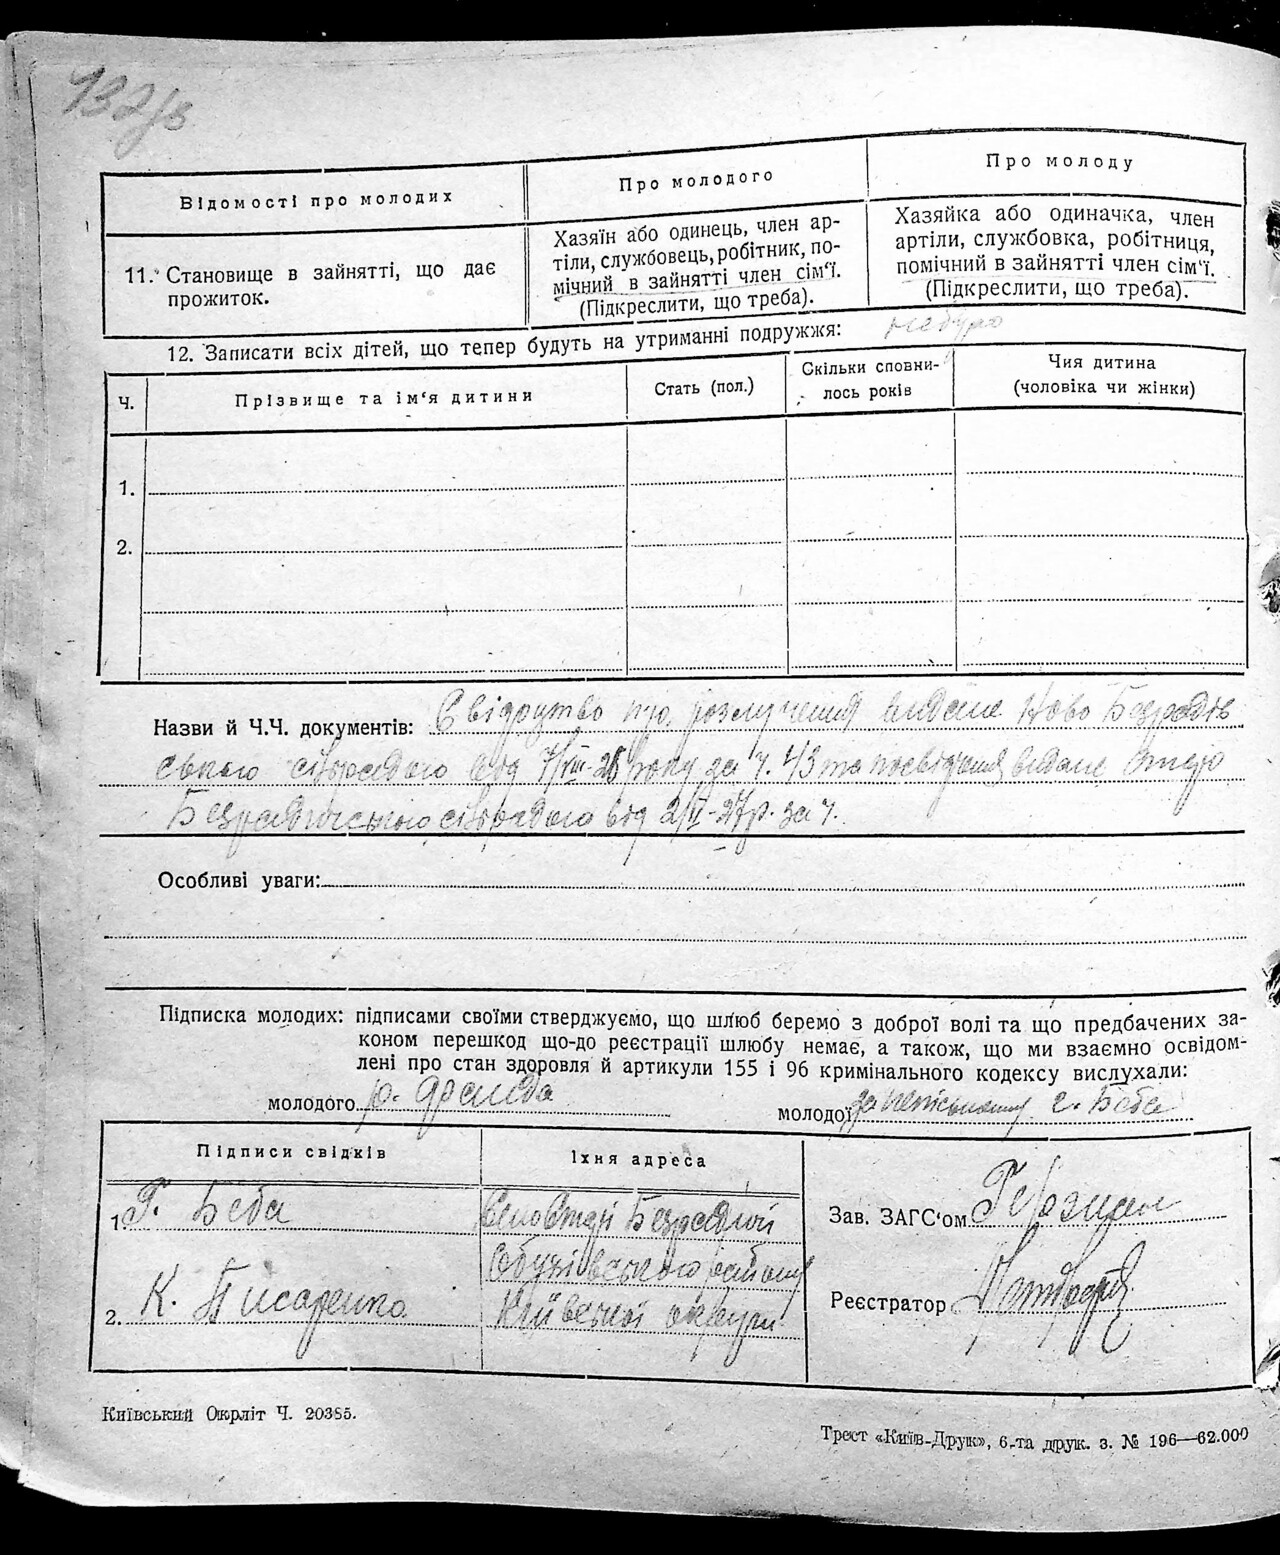 132/в
Відомості про молодих
Про молодого
Про молоду
11. Становище в зайнятті, що дає
прожиток.
Хазяїн або одинець, член ар-
тіли, службовець, робітник, по-
мічний в зайнятті член сім'ї.
(Підкреслити, що треба).
Хазяйка або одиначка, член
артіли, службовка, робітниця,
помічний в зайнятті член сім'ї.
(Підкреслити, що треба).
12. Записати всіх дітей, що тепер будуть на утриманні подружжя: небуло
Ч.
Прізвище та ім'я дитини
Стать (пол.)
Скільки сповни-
лось років
Чия дитина
(чоловіка чи жінки)
1.
2.
Назви й Ч.Ч. документів: Свідоцтво про розлучення видане Ново Безрадів
ською сільрадою від 7/VIII-26 року за ч. 43 та посвідчення видане
Безрадичською сільрадою від 2/II-27р. за ч.
Особливі уваги:
Підписка молодих: підписами своїми стверджуємо, що шлюб беремо з доброї волі та що предбачених за-
коном перешкод що-до реєстрації шлюбу немає, а також, що ми взаємно освідом-
лені про стан здоровля й артикули 155 і 96 кримінального кодексу вислухали:
молодого
молодої за неписьменну г. Беба
Підписи свідків
Їхня адреса
1. Г. Беба
Село Старі Безрадичі
Обухівського району
2. К. Писаренко
Київської округи
Зав. ЗАГС'ом
Реєстратор
Київський Окрліт Ч. 20385.
Трест «Київ-Друк», 6-та друк. з. № 196—62.000